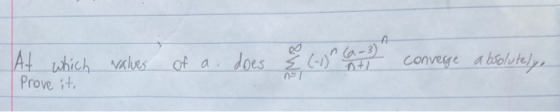 At which values of a does $\sum_{n=1}^{\infty} (-1)^n \frac{(a-3)^n}{n+1}$ converge absolutely.
Prove it.